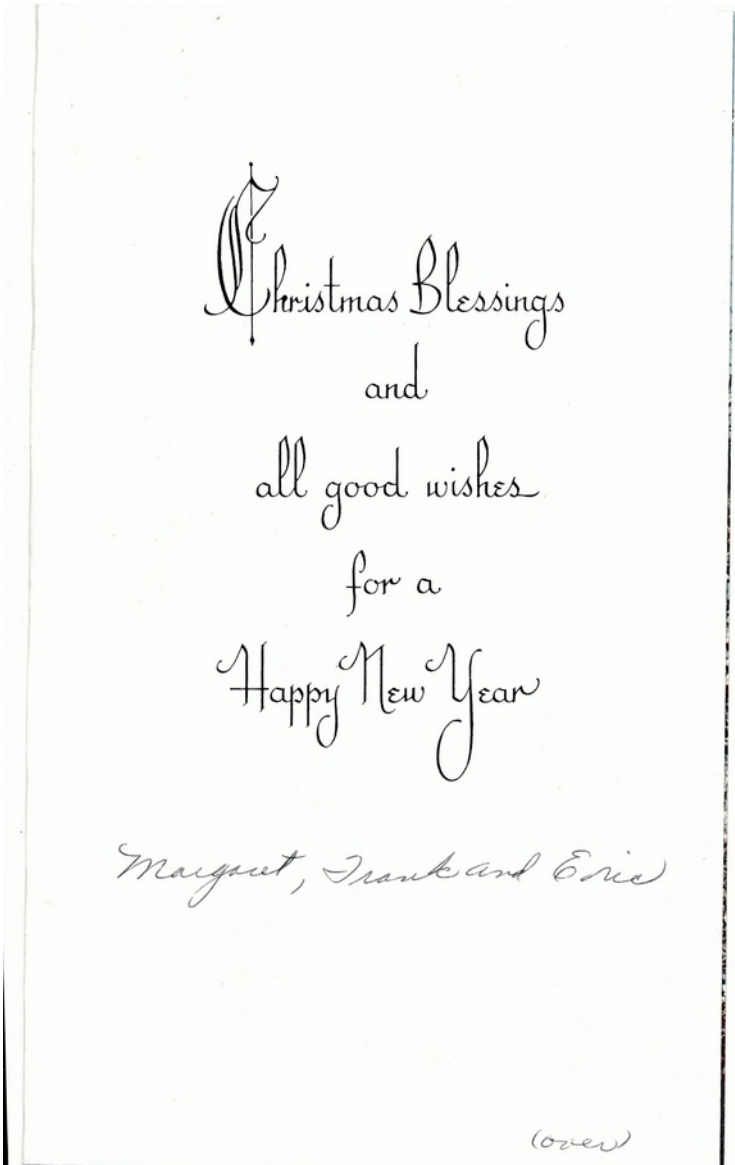 Christmas Blessings
and
all good wishes
for a
Happy New Year
Margaret, Frank and Eric
(over)